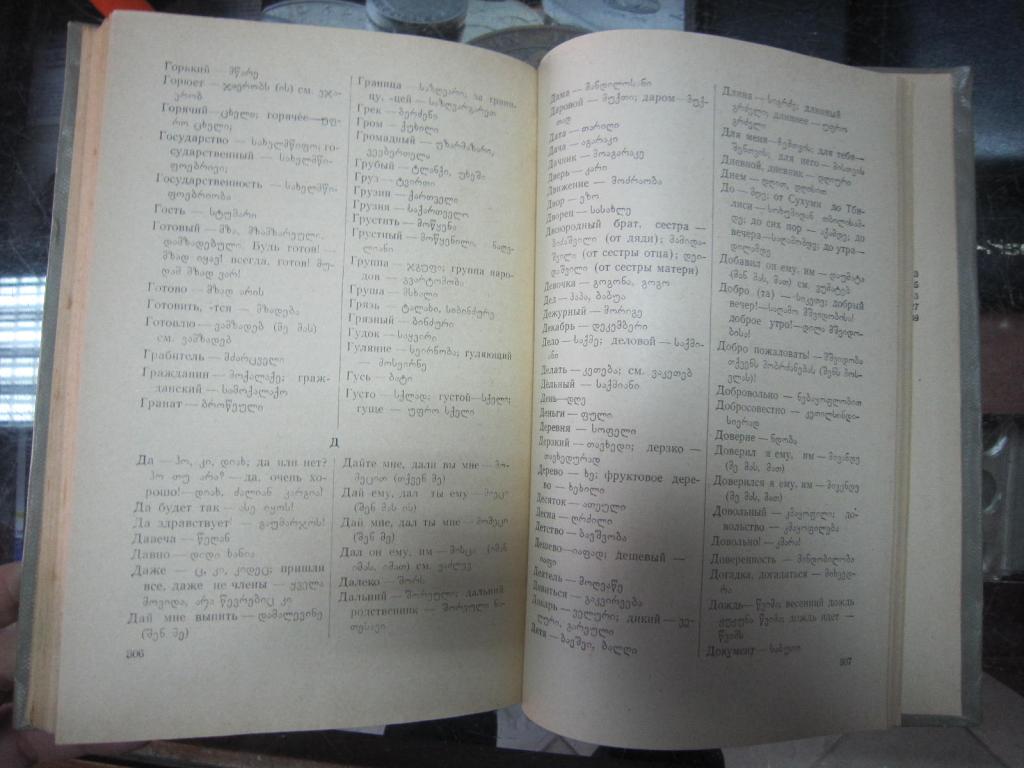 Горький — მწარე
Горюет — ჯავრობს (ის) см. ვჯავ-
რობ
Горячий — ცხელი; горячее —
რო ცხელი;
Государство — სახელმწიფო; го-
сударственный — სახელმწი-
ფოებრივი;
Государственность — სახელმწი-
ფოებრიობა
Гость — სტუმარი
Готовый — მზა, მზამზარეული,
დამზადებული. Будь готов! —
მზად იყავ! всегда, готов! მუ-
დამ მზად ვარ!
Готово — მზად არის
Готовить, -тся — მზადება
Готовлю — ვამზადებ (მე მას)
см. ვამზადებ
Грабитель — მძარცველი
Гражданин — მოქალაქე; граж-
данский — სამოქალაქო
Гранат — ბროწეული
Граница — საზღვარი; за грани-
цу, -цей — საზღვარგარეთ
Грек — ბერძენი
Гром — ქუხილი
Громадный — უზარმაზარი,
ვეებერთელა
Грубый — ტლანქი, უხეში
Груз — ტვირთი
Грузин — ქართველი
Грузия — საქართველო
Грустить — მოწყენა
Грустный — მოწყენილი, ნაღვ-
ლიანი
Группа — ჯგუფი; группа наро-
дов — გვარტომობა
Груша — მსხალი
Грязь — ტალახი, სიბინძურე
Грязный — ბინძური
Гудок — საყვირი
Гуляние — სეირნობა; гуляющий
მოსეირნე
Гусь — ბატი
Густо — სქლად; густой — სქელი;
гуще — უფრო სქელი
Д
Да — ჰო, კი, დიახ; да или нет?
ჰო თუ არა? — да, очень хо-
рошо! — დიახ, ძალიან კარგია!
Да будет так — ასე იყოს!
Да здравствует! — გაუმარჯოს!
Давеча — წეღან
Давно — დიდი ხანია
Даже — ც, კი, კიდეც; пришли
все, даже не члены — ყველა
მოვიდა, არა წევრებიც კი
Дай мне выпить — დამალევინე
(შენ მე)
306
Дайте мне, дали вы мне — მო-
მეცით (თქვენ მე)
Дай ему, дал ты ему — მიეცი
(შენ მას ის)
Дай мне, дал ты мне — მომეცი
(შენ მე)
Дал он ему, им — მისცა (იმან
იმას, იმათ) см. ვაძლევ
Далеко — შორს
Дальний — შორეული; дальний
родственник — შორეული ნა-
თესავი
Дама — მანდილოსანი
Даровой — მუქთი; даром — მუქ-
თად
Дата — თარიღი
Дача — აგარაკი
Дачник — მოაგარაკე
Дверь — კარი
Движение — მოძრაობა
Двор — ეზო
Дворец — სასახლე
Двоюродный брат, сестра —
ბიძაშვილი (от дяди); მამიდა-
შვილი (от сестры отца); დეი-
დაშვილი (от сестры матери)
Девочка — გოგონა, გოგო
Дед — პაპა, ბაბუა
Дежурный — მორიგე
Декабрь — დეკემბერი
Дело — საქმე; деловой — საქმი-
ანი
Делать — კეთება; см. ვაკეთებ
Дельный — საქმიანი
День — დღე
Деньги — ფული
Деревня — სოფელი
Дерзкий — თავხედი; дерзко —
თავხედურად
Дерево — ხე; фруктовое дере-
во — ხეხილი
Десяток — ათეული
Десна — ღრძილი
Детство — ბავშვობა
Дешево — იაფად; дешевый —
იაფი
Деятель — მოღვაწე
Дивиться — გაკვირვება
Дикарь — ველური; дикий — ვე-
ლური, გარეული
Дитя — ბავშვი, ბალღი
Длина — სიგრძე; длинный
გრძელი; длиннее — უფრო
გრძელი
Для меня — ჩემთვის; для тебя —
შენთვის, для него — მისთვის
Дневной, дневник — დღიური
Днем — დღით, დღისით
До — მდე; от Сухуми до Тби-
лиси — სოხუმიდან თბილისამ-
დე; до сих пор — აქამდე; до
вечера — საღამომდე; до утра —
დილამდე
Добавил он ему, им — დაუმატა
(მან მას, მათ) см. ვუმატებ
Добро (та) — სიკეთე; добрый
вечер! — საღამო მშვიდობისა!
доброе утро! — დილა მშვიდო-
ბისა!
Добро пожаловать! — მშვიდობა
თქვენს მობრძანებას (შენს მოს-
ვლას)!
Добровольно — ნებაყოფლობით
Добросовестно — კეთილსინდი-
სიერად
Доверие — ნდობა
Доверил я ему, им — მივანდე
(მე მას, მათ)
Доверился я ему, им — მივენდე
(მე მას, მათ)
Довольный — კმაყოფილი; до-
вольство — კმაყოფილება
Довольно! — კმარა!
Доверенность — მინდობილობა
Догадка, догадаться — მიხვედ-
რა
Дождь — წვიმა; весенний дождь
ჟუჟუნა წვიმა; дождь идет —
წვიმს
Документ — საბუთი
307